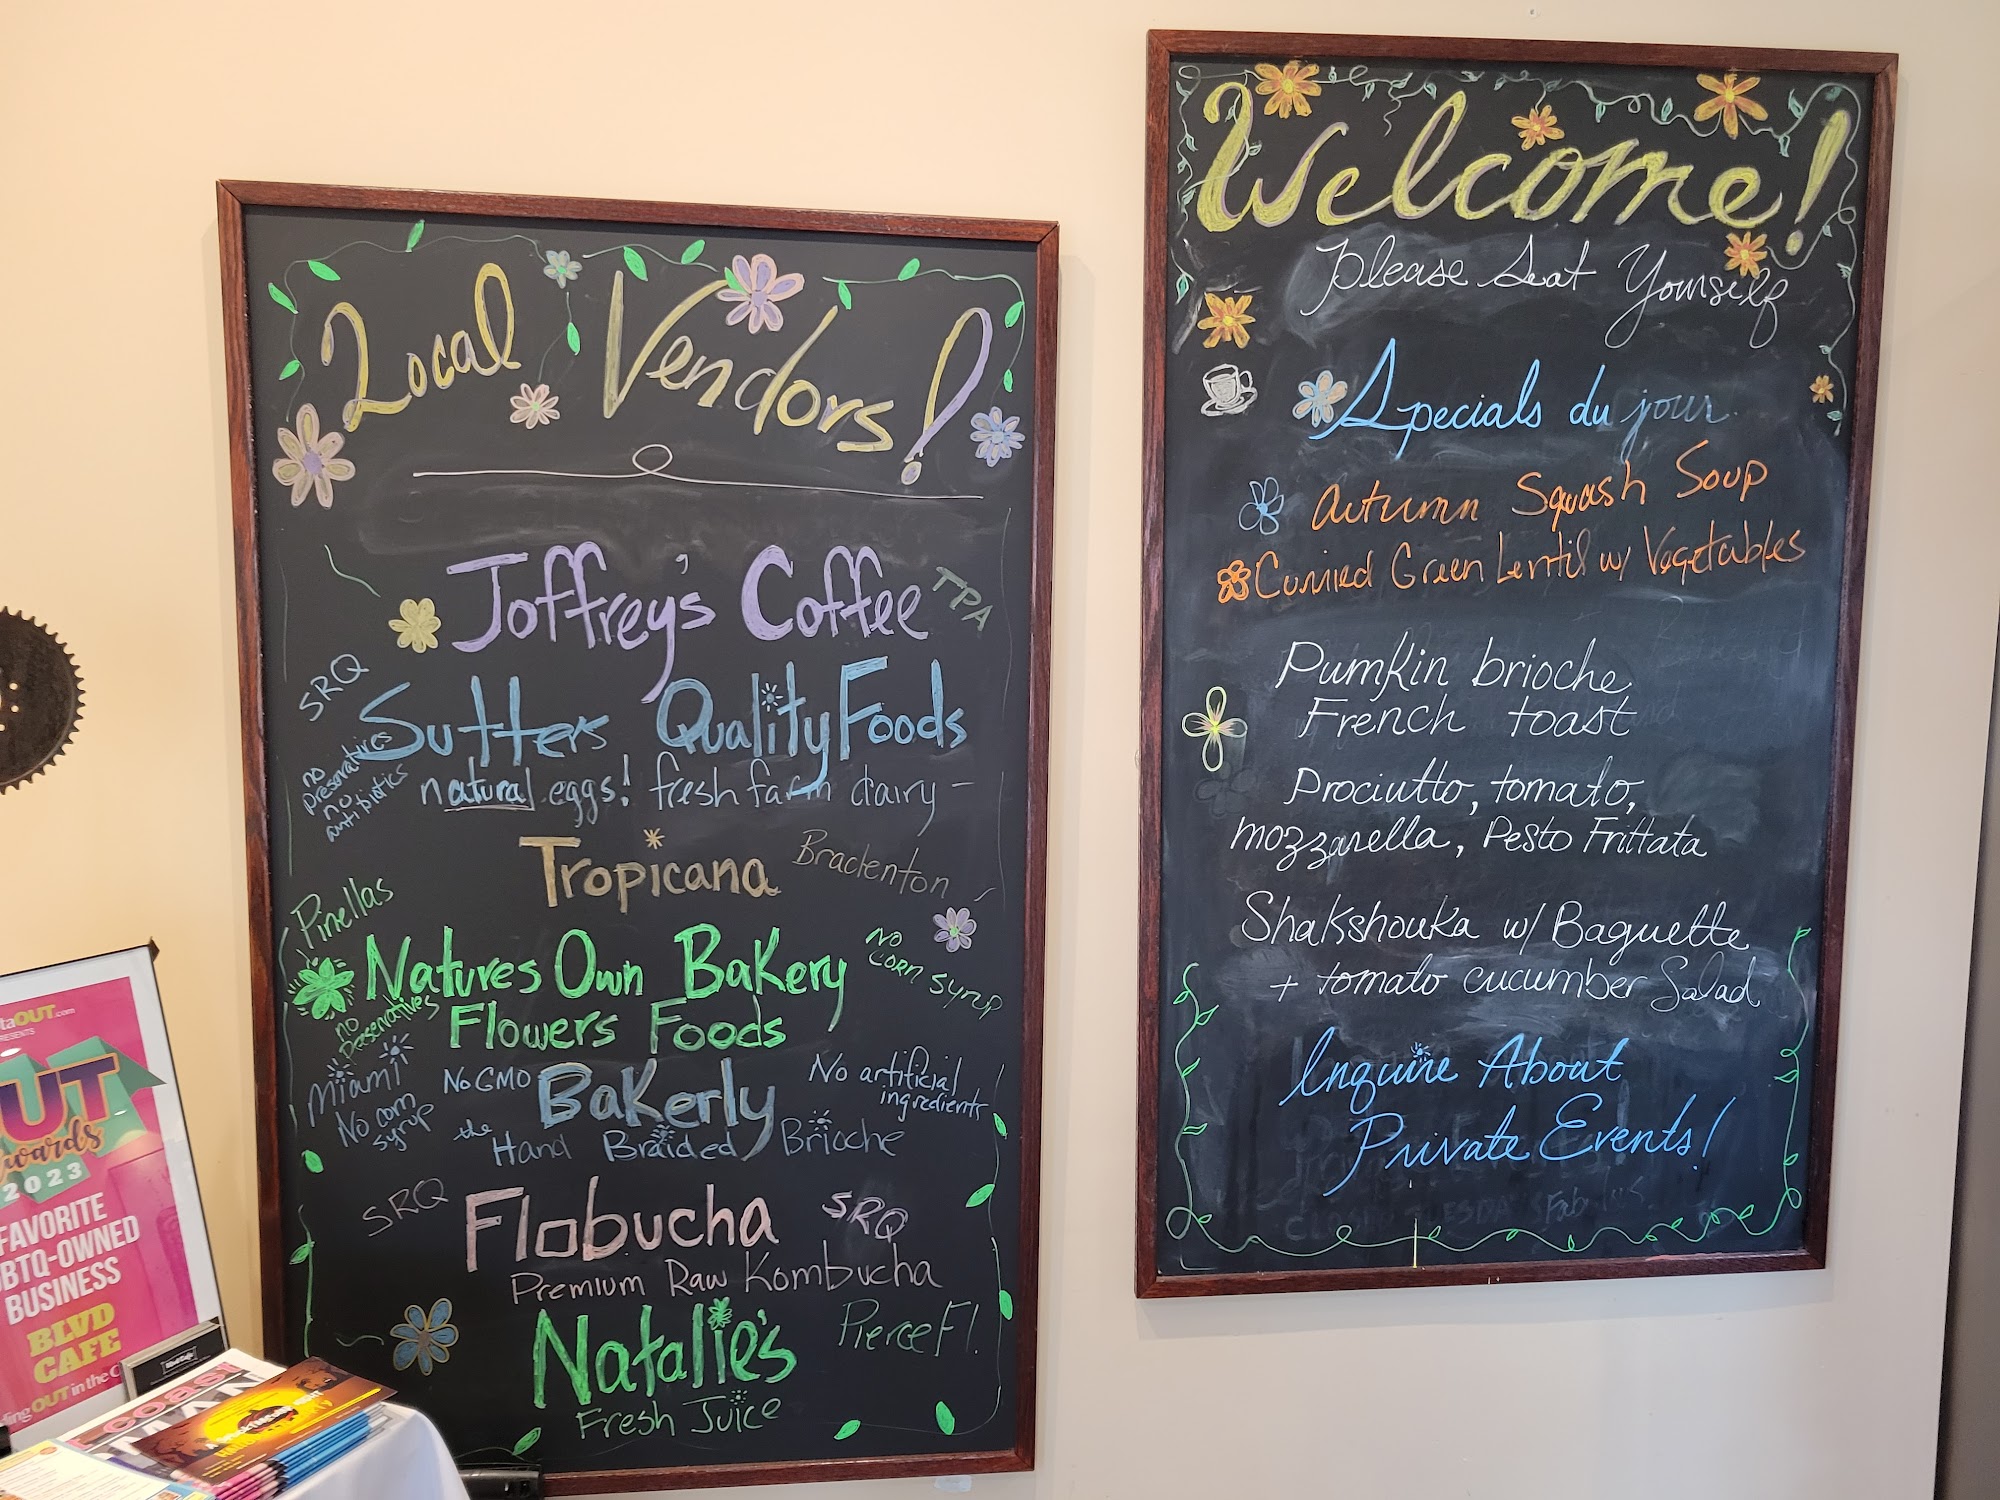 Local Vendors!
Joffrey's Coffee TPA
SRQ
Sutters Quality Foods
no preservatives
no antibiotics
natural eggs! fresh farm dairy -
Tropicana Bradenton
Pinellas
Natures Own Bakery
no corn syrup
no preservatives
Flowers Foods
Miami
No corn syrup
No GMO
Bakerly
No artificial ingredients
the Hand Braided Brioche
SRQ Flobucha SRQ
Premium Raw Kombucha
Natalie's Pierce Fl.
Fresh Juice
Welcome!
Please Seat Yourself
Specials du jour
Autumn Squash Soup
Curried Green Lentil w/ Vegetables
Pumkin brioche
French toast
Prociutto, tomato,
mozzarella, Pesto Frittata
Shakshouka w/ Baguette
+ tomato cucumber Salad
Inquire About
Private Events!
OUT.com
UT
2023
FAVORITE
BTQ-OWNED
BUSINESS
BLVD
CAFE
OUT in the